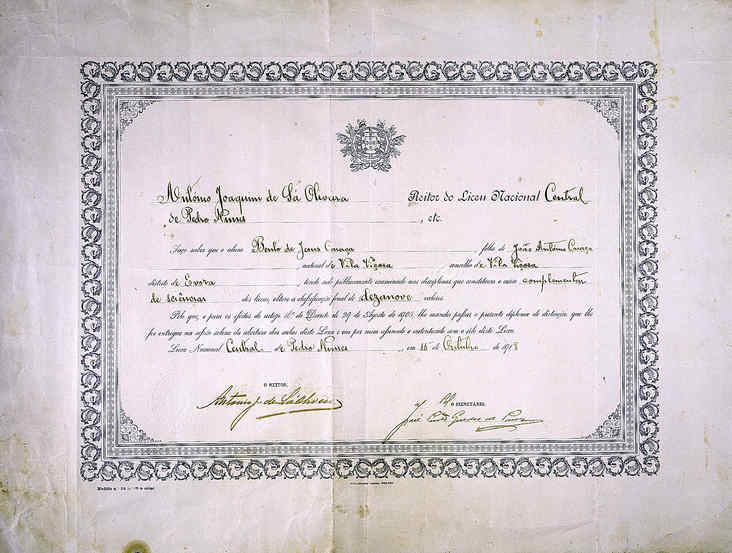 António Joaquim de Sá Oliveira Reitor do Liceu Nacional Central
de Pedro Nunes, etc.
Faço saber que o aluno Bento de Jesus Caraça filho de João António Caraça
natural de Vila Viçosa concelho de Vila Viçosa
distrito de Evora, tendo sido publicamente examinado nas disciplinas que constituem o curso complementar
de sciencias dos liceus, obteve a classificação final de dezanove valores.
Pelo que, e para os efeitos do artigo do Decreto de 29 de Agosto de 1905, lhe mandei passar o presente diploma de distinção, que lhe
foi entregue na sessão solene da abertura das aulas deste Liceu e vai por mim assinado e autenticado com o selo deste Liceu.
Liceu Nacional Central de Pedro Nunes, em de Outubro de 1918
O REITOR, O SECRETÁRIO,